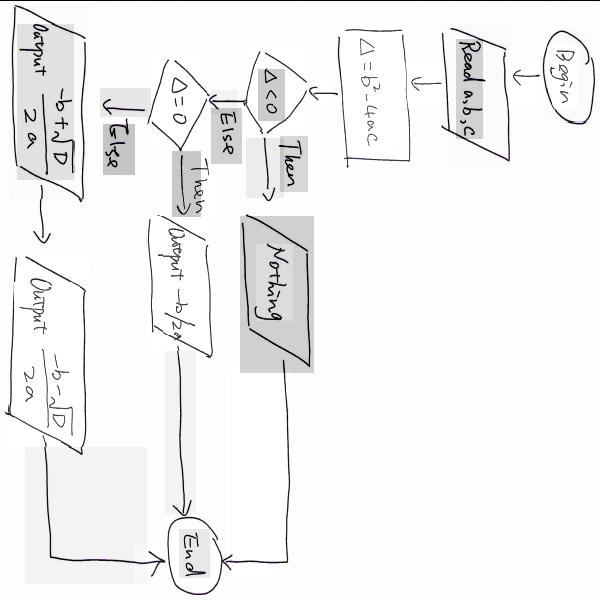 Begin
Read a,b,c
Δ=b²-4ac
Δ<0
Then
Nothing
Else
Δ=0
Then
Output -b/2a
Else
Output -b+√D
2a
Output -b-√D
2a
End